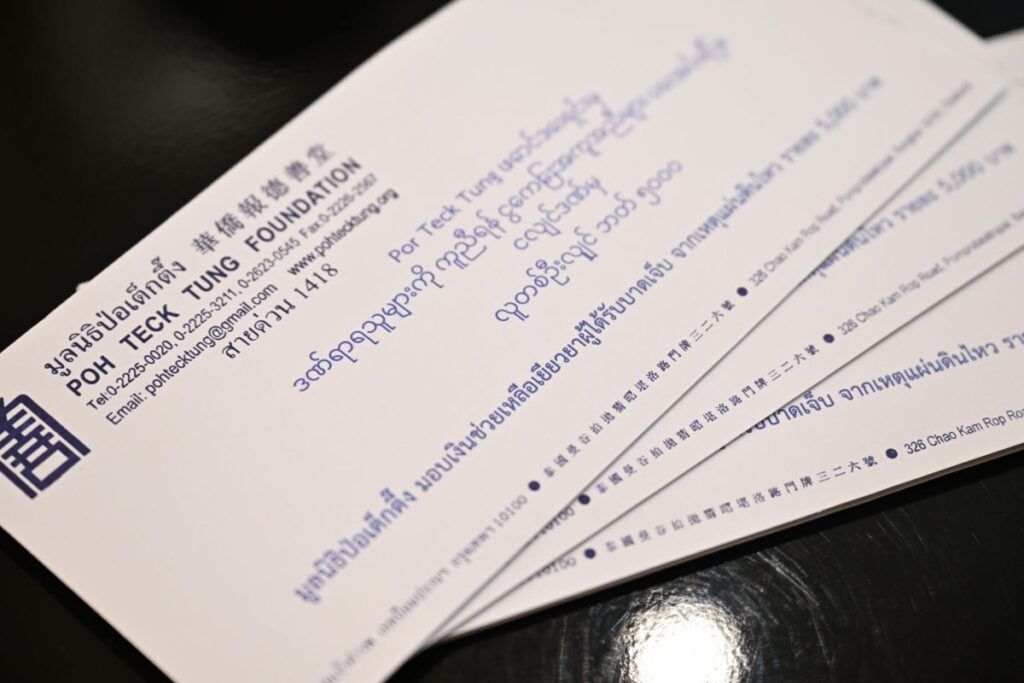 มูลนิธิป่อเต็กตึ๊ง 華僑報德善堂
POH TECK TUNG FOUNDATION
Tel:0-2225-0020 0-2225-3211, 0-2623-0545 Fax.0-2226-2567
Email: pohtecktung@gmail.com www.pohtecktung.org
สายด่วน 1418
善
Por Teck Tung
ဒဏ်ရာရသူများကို ကူညီရန် ငွေကြေး
ငလျင်ဒဏ်မှ
လူတစ်ဦးလျှင် ဘတ် ၅၀၀၀
มูลนิธิป่อเต็กตึ๊ง มอบเงินช่วยเหลือเยียวยาผู้ได้รับบาดเจ็บ จากเหตุแผ่นดินไหว รายละ 5,000 บาท
กรุงเทพฯ 10100 ● 泰國曼谷拍拋猜昭堪洛路門牌三二六號 ● 326 Chao Kam Rop Road,
แผ่นดินไหว รายละ 5,000 บาท
10100 ● 泰國曼谷拍拋猜昭堪洛路門牌三二六號 ● 326 Chao Kam Rop Road,
บาดเจ็บ จากเหตุแผ่นดินไหว
10100 ● 泰國曼谷拍拋猜昭堪洛路門牌三二六號 ● 326 Chao Kam Rop